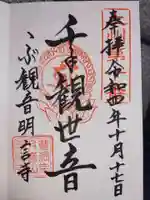 奉拝 令和四年十月十七日
千手観世音
こぶ観音明言寺